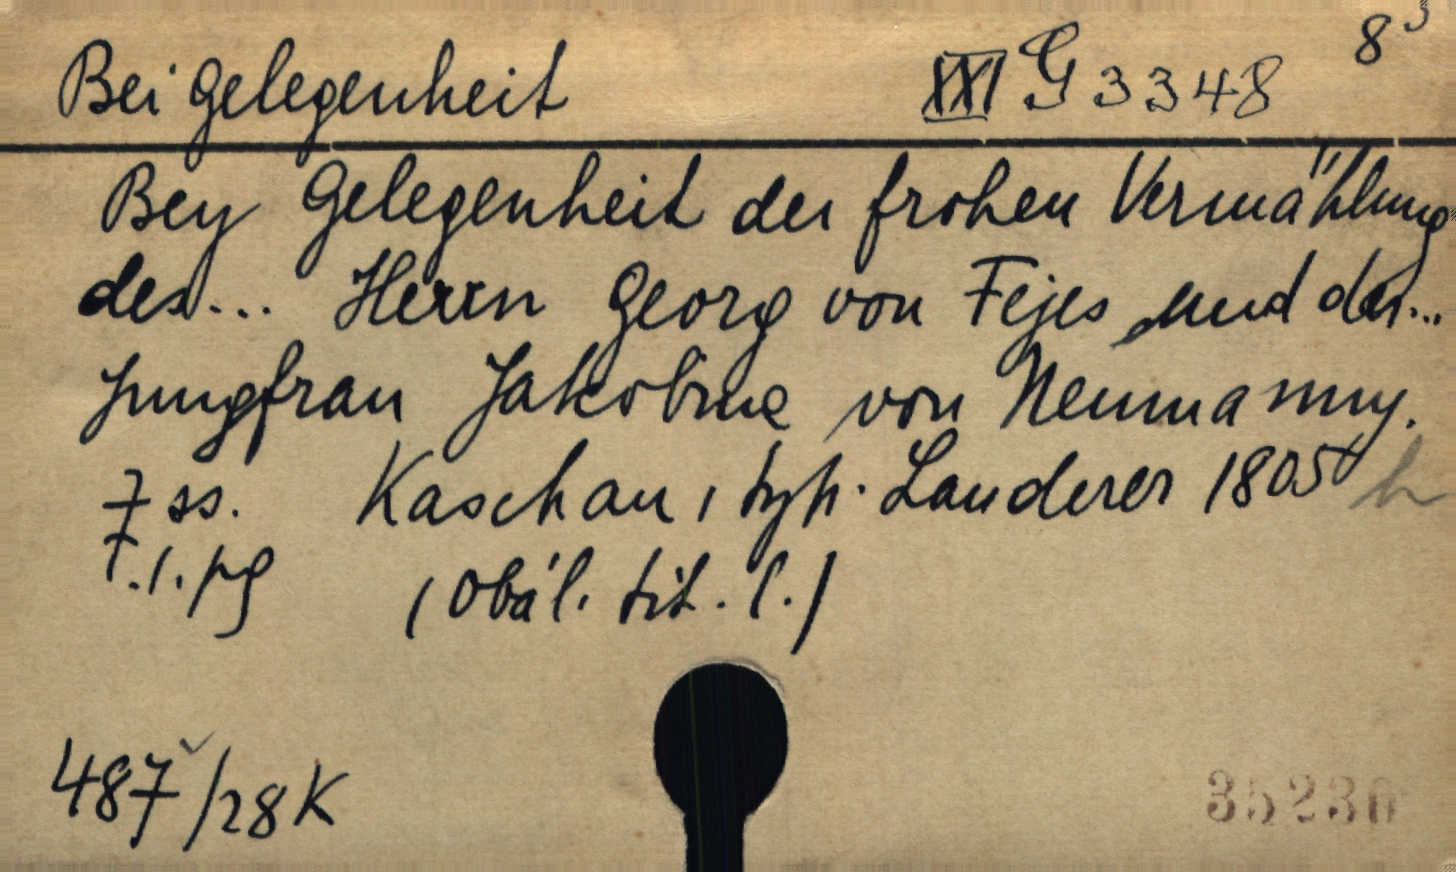 Bei Gelegenheit XXI G 3348 8³
Bey Gelegenheit der frohen Vermählung
des... Herrn Georg von Fejes und der...
Jungfrau Jakobine von Neumanny.
7 ss. Kaschau, typ. Landerer 1805
F. 1. pg (Obál. tit. l.)
487/28K 35230